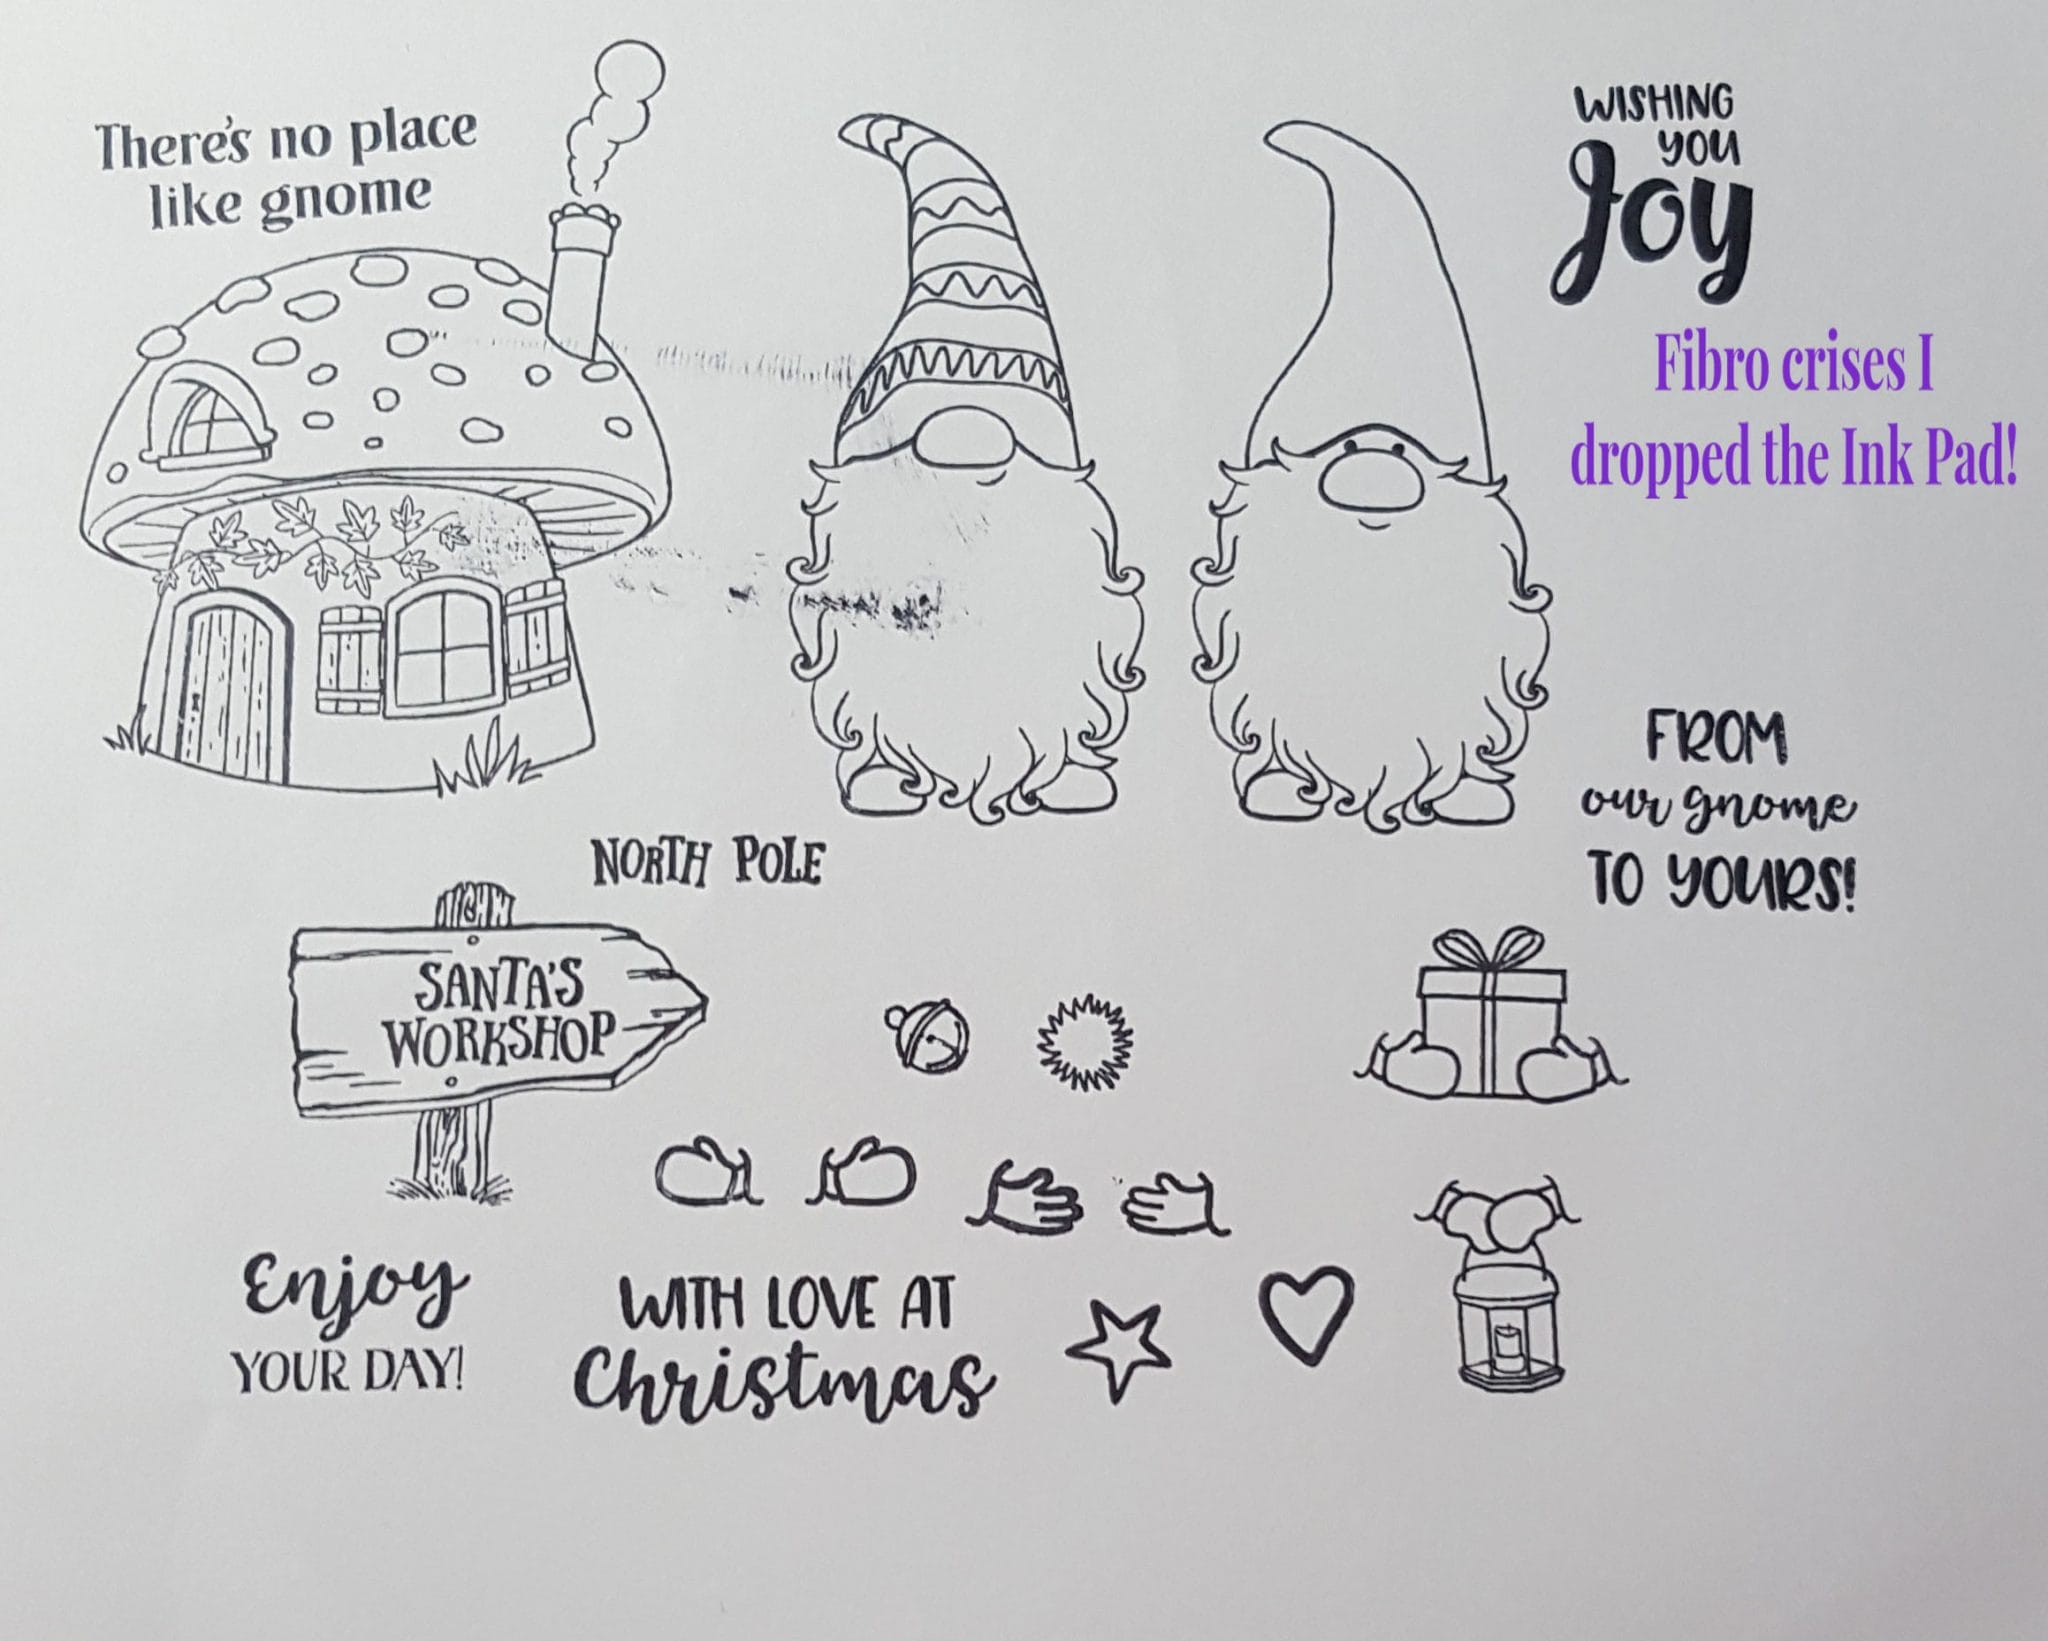 There's no place
like gnome
WISHING
YOU
Joy
Fibro crises I
dropped the Ink Pad!
FROM
our gnome
TO YOURS!
NORTH POLE
SANTA'S
WORKSHOP
Enjoy
YOUR DAY!
WITH LOVE AT
Christmas